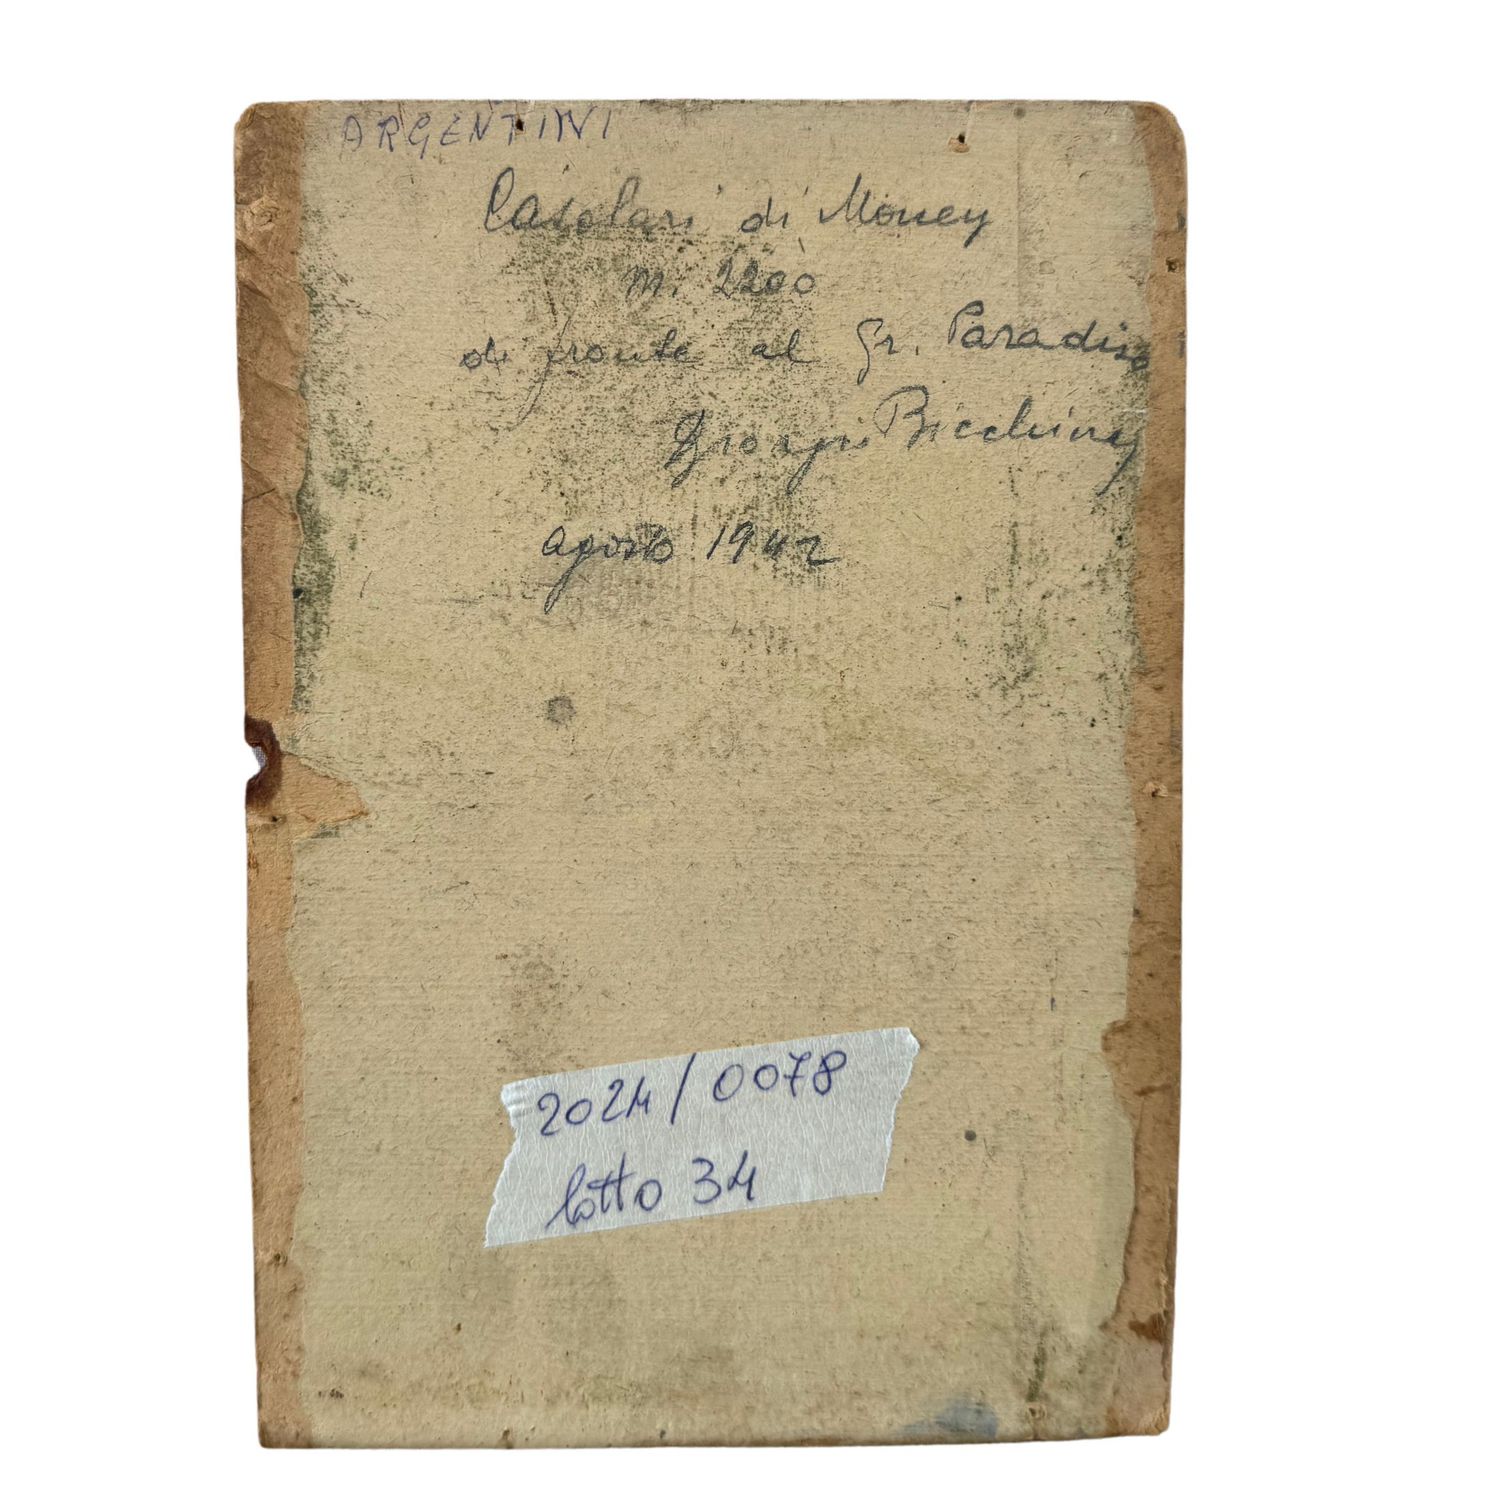 ARGENTINI
Casolari di Money
m. 2200
di fronte al Gr. Paradiso
agosto 1942
2024/0078
lotto 34